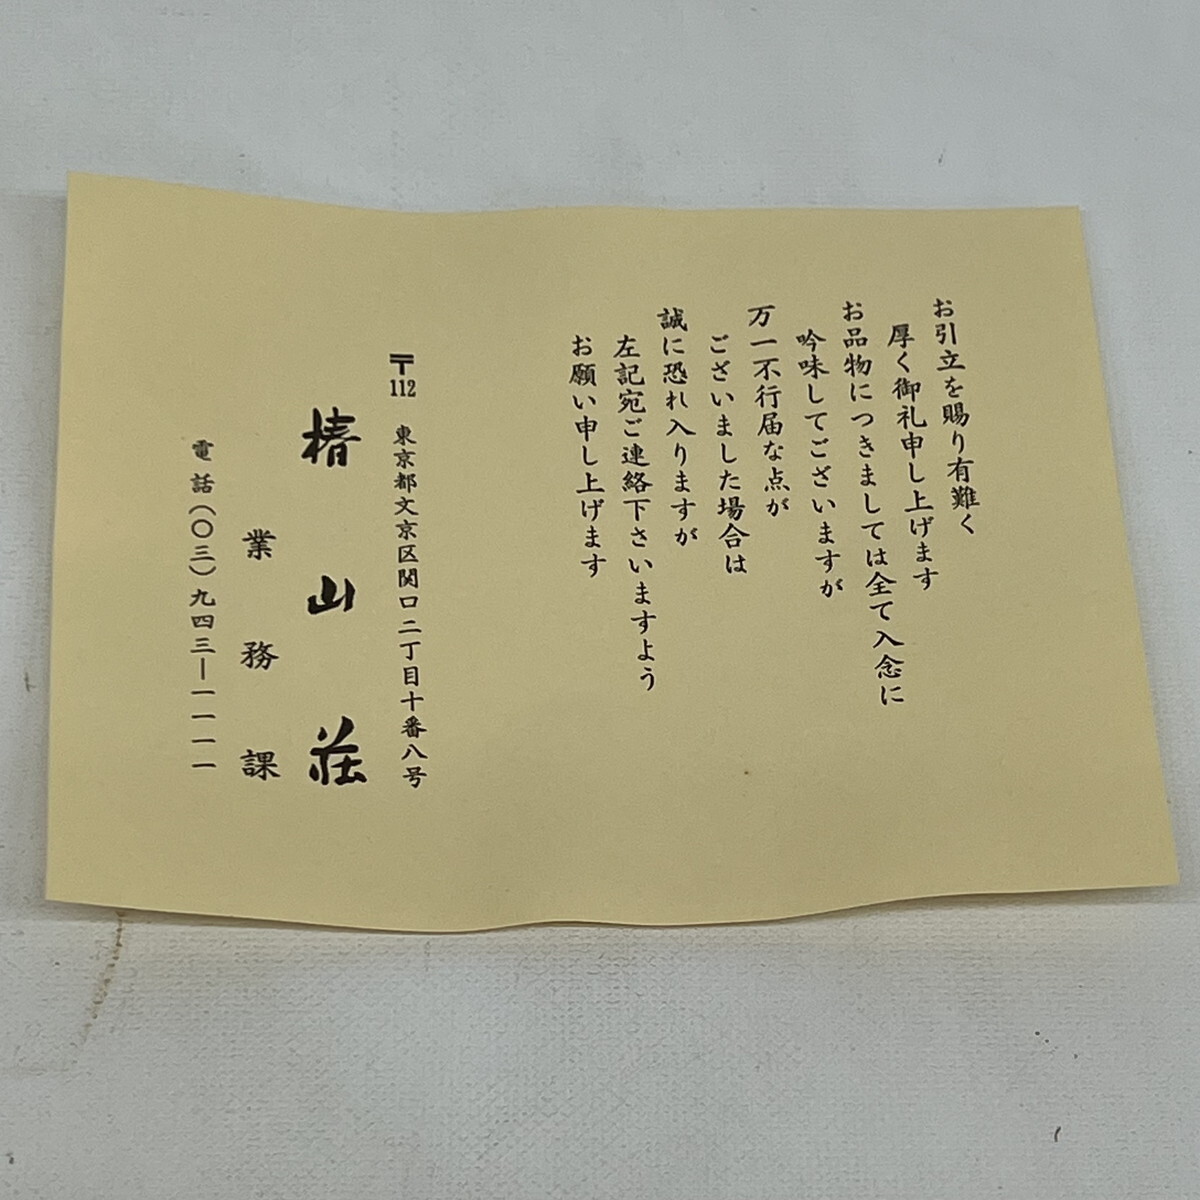 お引立を賜り有難く
厚く御礼申し上げます
お品物につきましては全て入念に
吟味してございますが
万一不行届な点が
ございました場合は
誠に恐れ入りますが
左記宛ご連絡下さいますよう
お願い申し上げます
〒112 東京都文京区関口二丁目十番八号
椿山荘
業務課
電話(〇三)九四三―一一一一